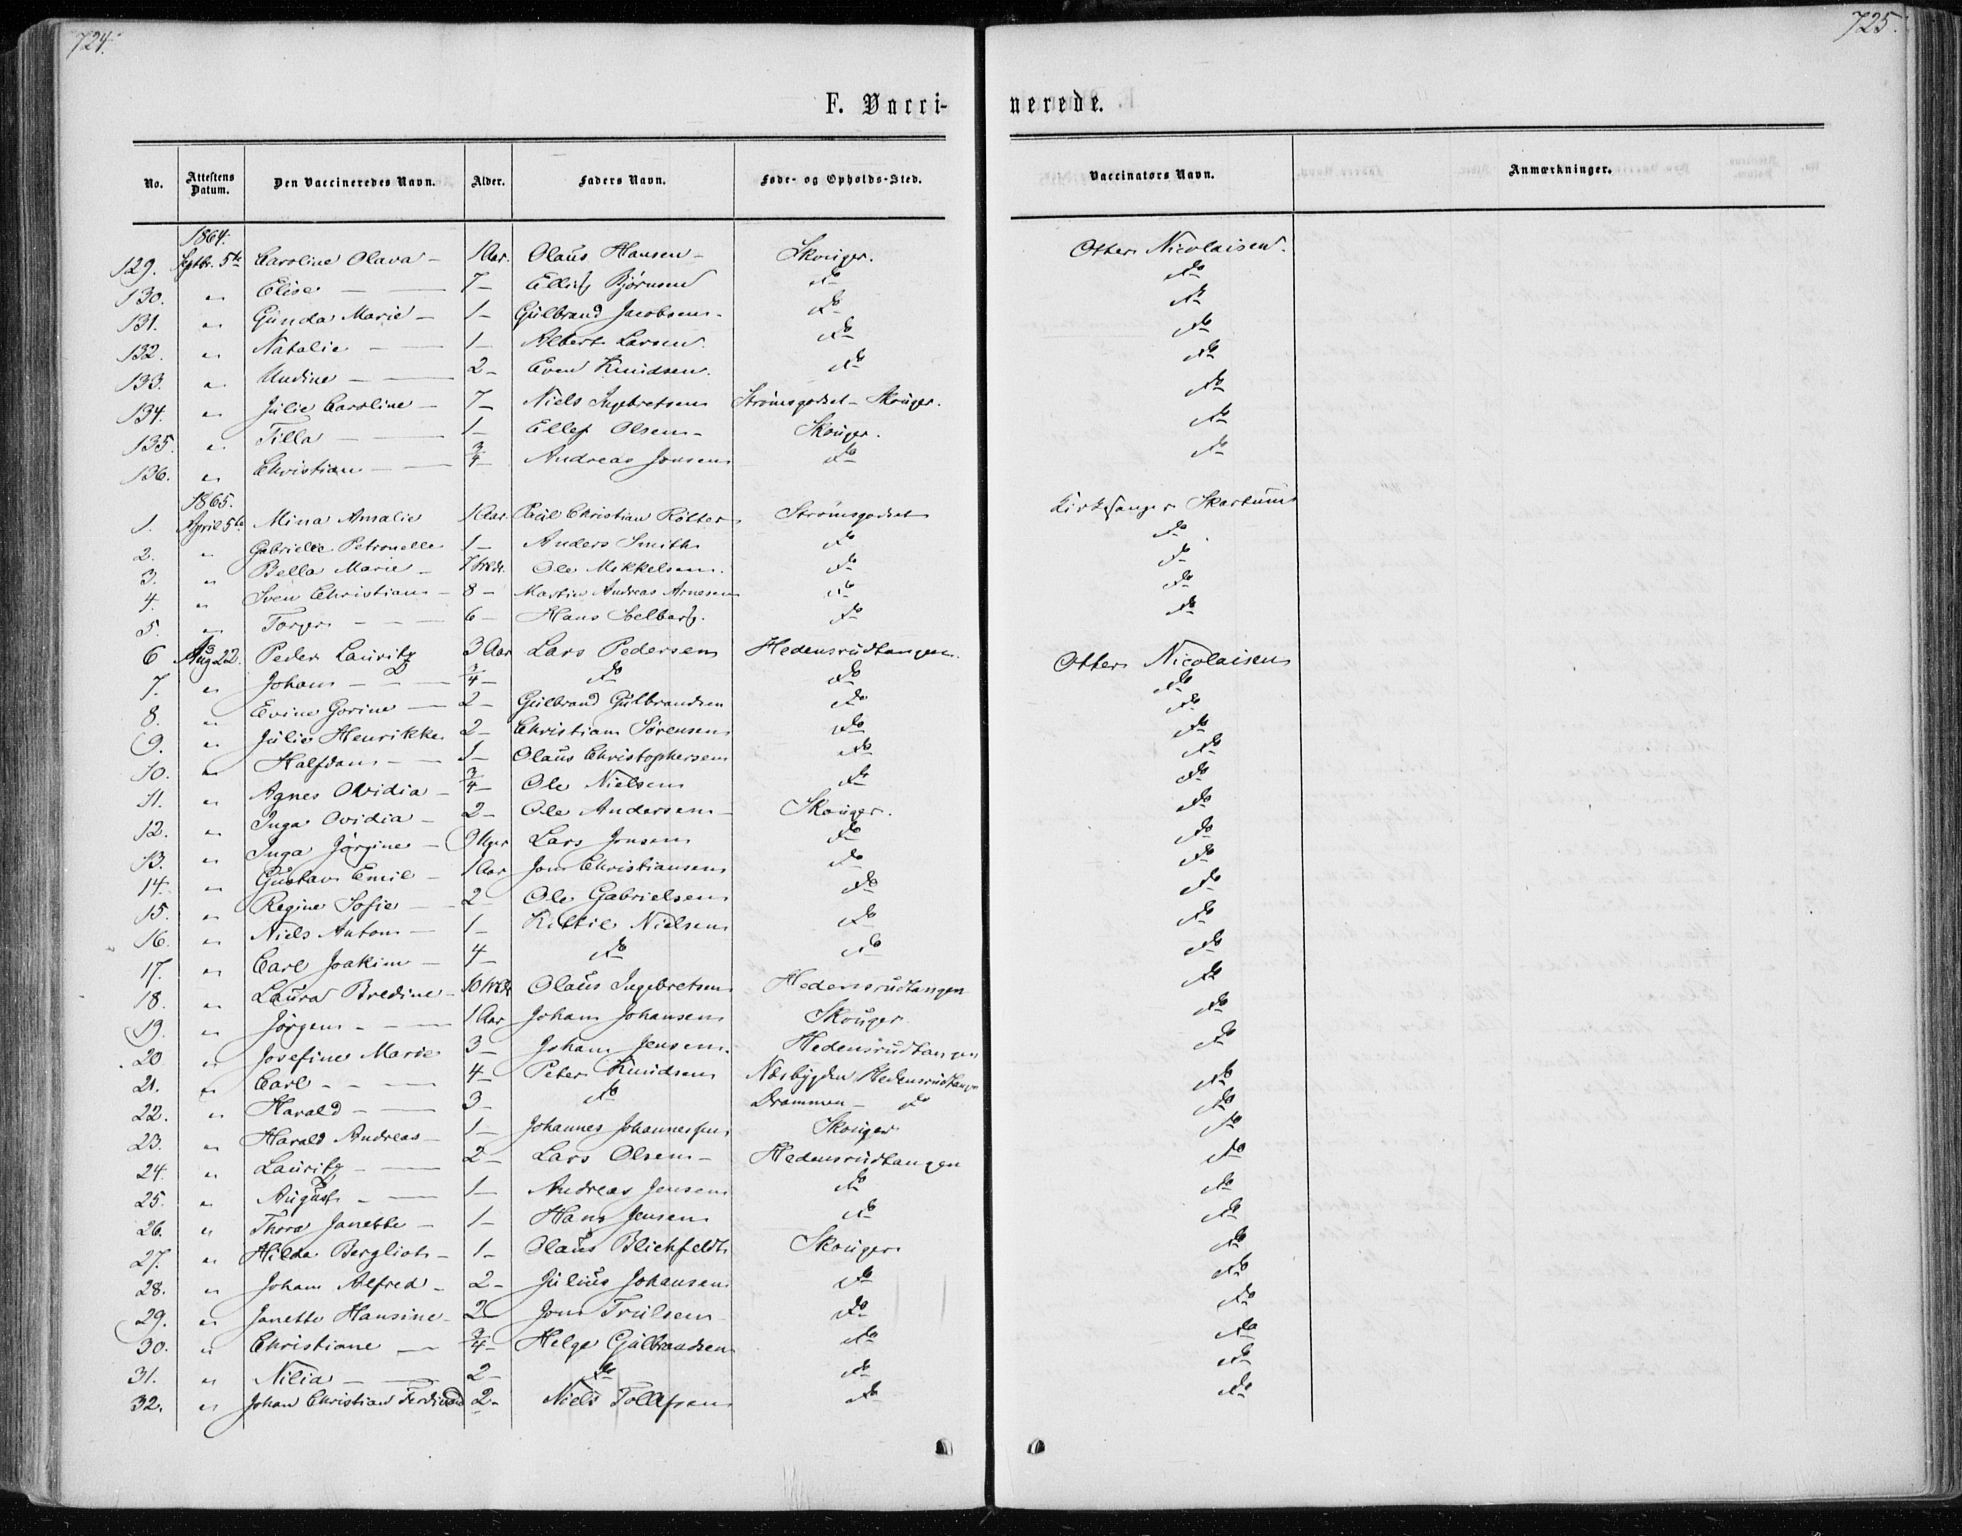 724.
725.
F. Vacci-
nerede.
No. Attestens Datum. Den Vaccineredes Navn. Alder. Faders Navn. Føde- og Opholds-Sted. Vaccinators Navn. Anmærkninger.
1864.
129. Sptbr. 5te Caroline Olava - 1 Aar. Olaus Hansen - Skouger. Otter Nicolaisen.
130. " Elise - 7 - Ellef Bjørnsen do do
131. " Gunda Marie - 1 - Gulbrand Jacobsen - do do
132. " Natalie - 1 - Albert Larsen do do
133. " Undine - 2 - Even Knudsen. do do
134. " Julie Caroline - 7 - Niels Ingebretsen Strømsgodset - Skouger. do
135. " Tilla - 1 - Ellef Olsen - Skouger. do
136. " Christian - 3/4 - Andreas Jonsen do do
1865.
1. April 5te Mina Amalie 1 Aar. Christian Strømsgodset Kirkesanger Skartum
2. " Gabrielle Petronelle 1 - Anders Smith do do
3. " Bella Marie - Ole Mikkelsen. do do
4. " Sven Christian - 8 - Martin Andreas Arnesen do do
5. " Torger - 6 - Hans do do
6 Aug 22. Peder Lauritz 3 Aar Lars Pedersen Hedensrudtangen. Otter Nicolaisen
7. " Johan - 3/4 - do do do
8. " Evine Gorine - 2 - Gulbrand Gulbrandsen do do
9. " Julie Henrikke 2 - Christian Sørensen do do
10. " Halfdan - 1 - Olaus Christophersen do do
11. " Agnes Ovidia - 3/4 - Ole Nielsen do do
12. " Inga Ovidia - 2 - Ole Andersen - Skouger. do
13. " Inga Jørgine - 9 Uger Lars Jonsen do do
14. " Gustav Emil - 1 Aar Jon Christiansen do do
15. " Regine Sofie - 2 Ole Gabrielsen do do
16. " Niels Anton - 1 - Kittil Nielsen do do
17. " Carl Joakim - 4 - do do do
18. " Laura Bredine - 10 Olaus Ingebretsen Hedensrudtangen do
19. " Jørgen - 1 Aar Johan Johansen Skouger do
20 " Josefine Marie 3 - Johan Jensen. Hedensrudtangen do
21. " Carl - 4 - Peter Knudsen Næsbygden Hedensrudtangen do
22. " Harald - 3 - do Drammen - do do
23. " Harald Andreas - 1 - Johannes Johannessen Skouger do
24. " Lauritz - 2 - Lars Olsen - Hedensrudtangen do
25. " August - 1 - Andreas Jensen do do
26. " Thora Janette - 1 - Hans Jensen do do
27. " Hilda Bergliot - 1 - Olaus Blichfeldt Skouger do
28. " Johan Alfred - 2 - Julius Johansen do do
29. " Janette Hansine - 2 - Jon Trulsen do do
30. " Christiane - 3/4 - Helge Gulbrandsen do do
31. " Nilia - 2 - do do do
32. " Johan Christian Ferdinand 2 - Niels Tollefsen do do